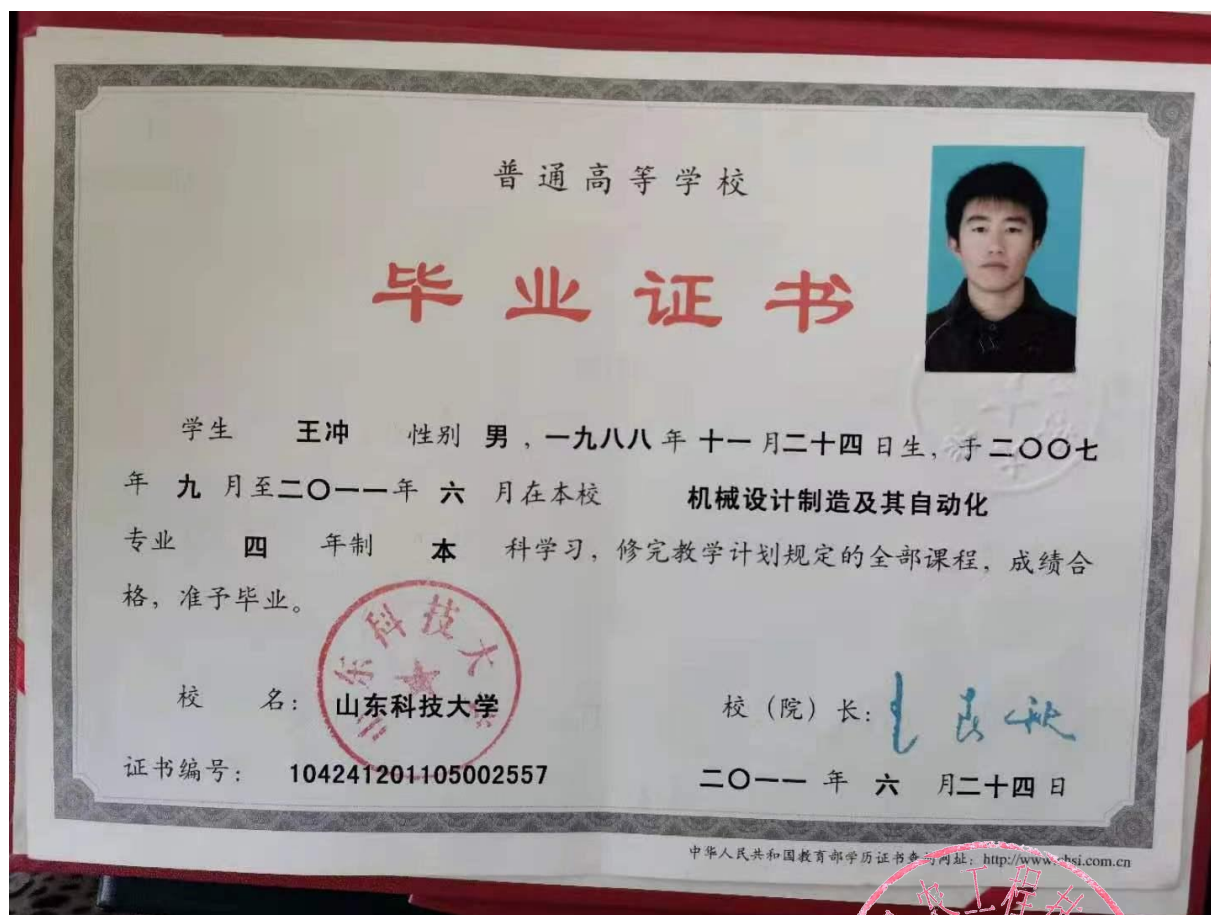 普通高等学校
毕业证书
学生 王冲 性别 男，一九八八 年 十一 月二十四 日生，于二〇〇七
年 九 月至二〇一一年 六 月在本校 机械设计制造及其自动化
专业 四 年制 本 科学习，修完教学计划规定的全部课程，成绩合
格，准予毕业。
山东科技大学
校 名： 山东科技大学 校（院）长：
证书编号： 104241201105002557 二〇一一 年 六 月二十四 日
中华人民共和国教育部学历证书查询网址：http://www.chsi.com.cn
工程